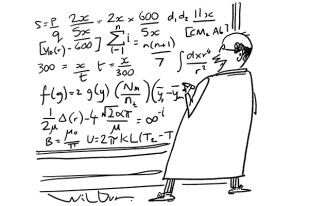 S = P/q 2x/5x = 2x × 600/5x d₁ d₂ 11x
[y₀(r) - 600] n∑i-1 i = n(n+1)/7 [CM₂ Ab]
300 = x/t t = x/300 ∫ dxr⁶/r²
f(g) = 2 g(y) (Nₘ/nₜ) (y̅₁ - y̅ₘ
1/2μ Δ(r) - 4 √2απ/μ = ∞⁻ⁱ
B = μ₀/π U = 2πkL(T₂ - T
Wilbur